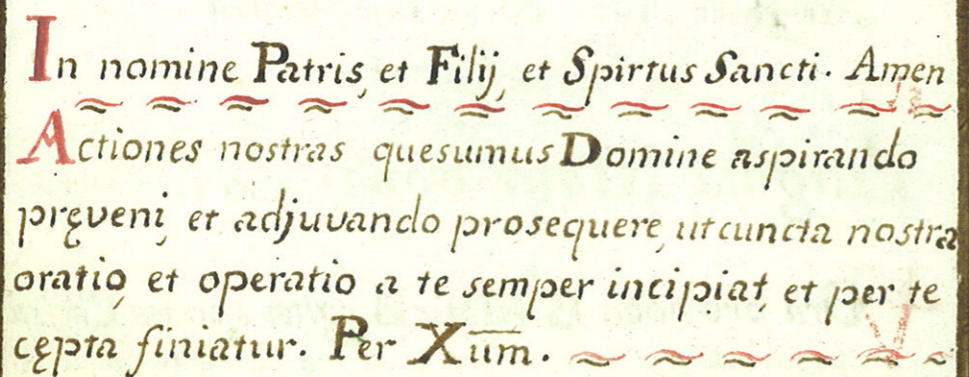 In nomine Patris, et Filij, et Spirtus Sancti. Amen
Actiones nostras quesumus Domine aspirando
pręveni, et adjuvando prosequere, ut cuncta nostra
oratio, et operatio a te semper incipiat, et per te
cępta finiatur. Per Xum̅.